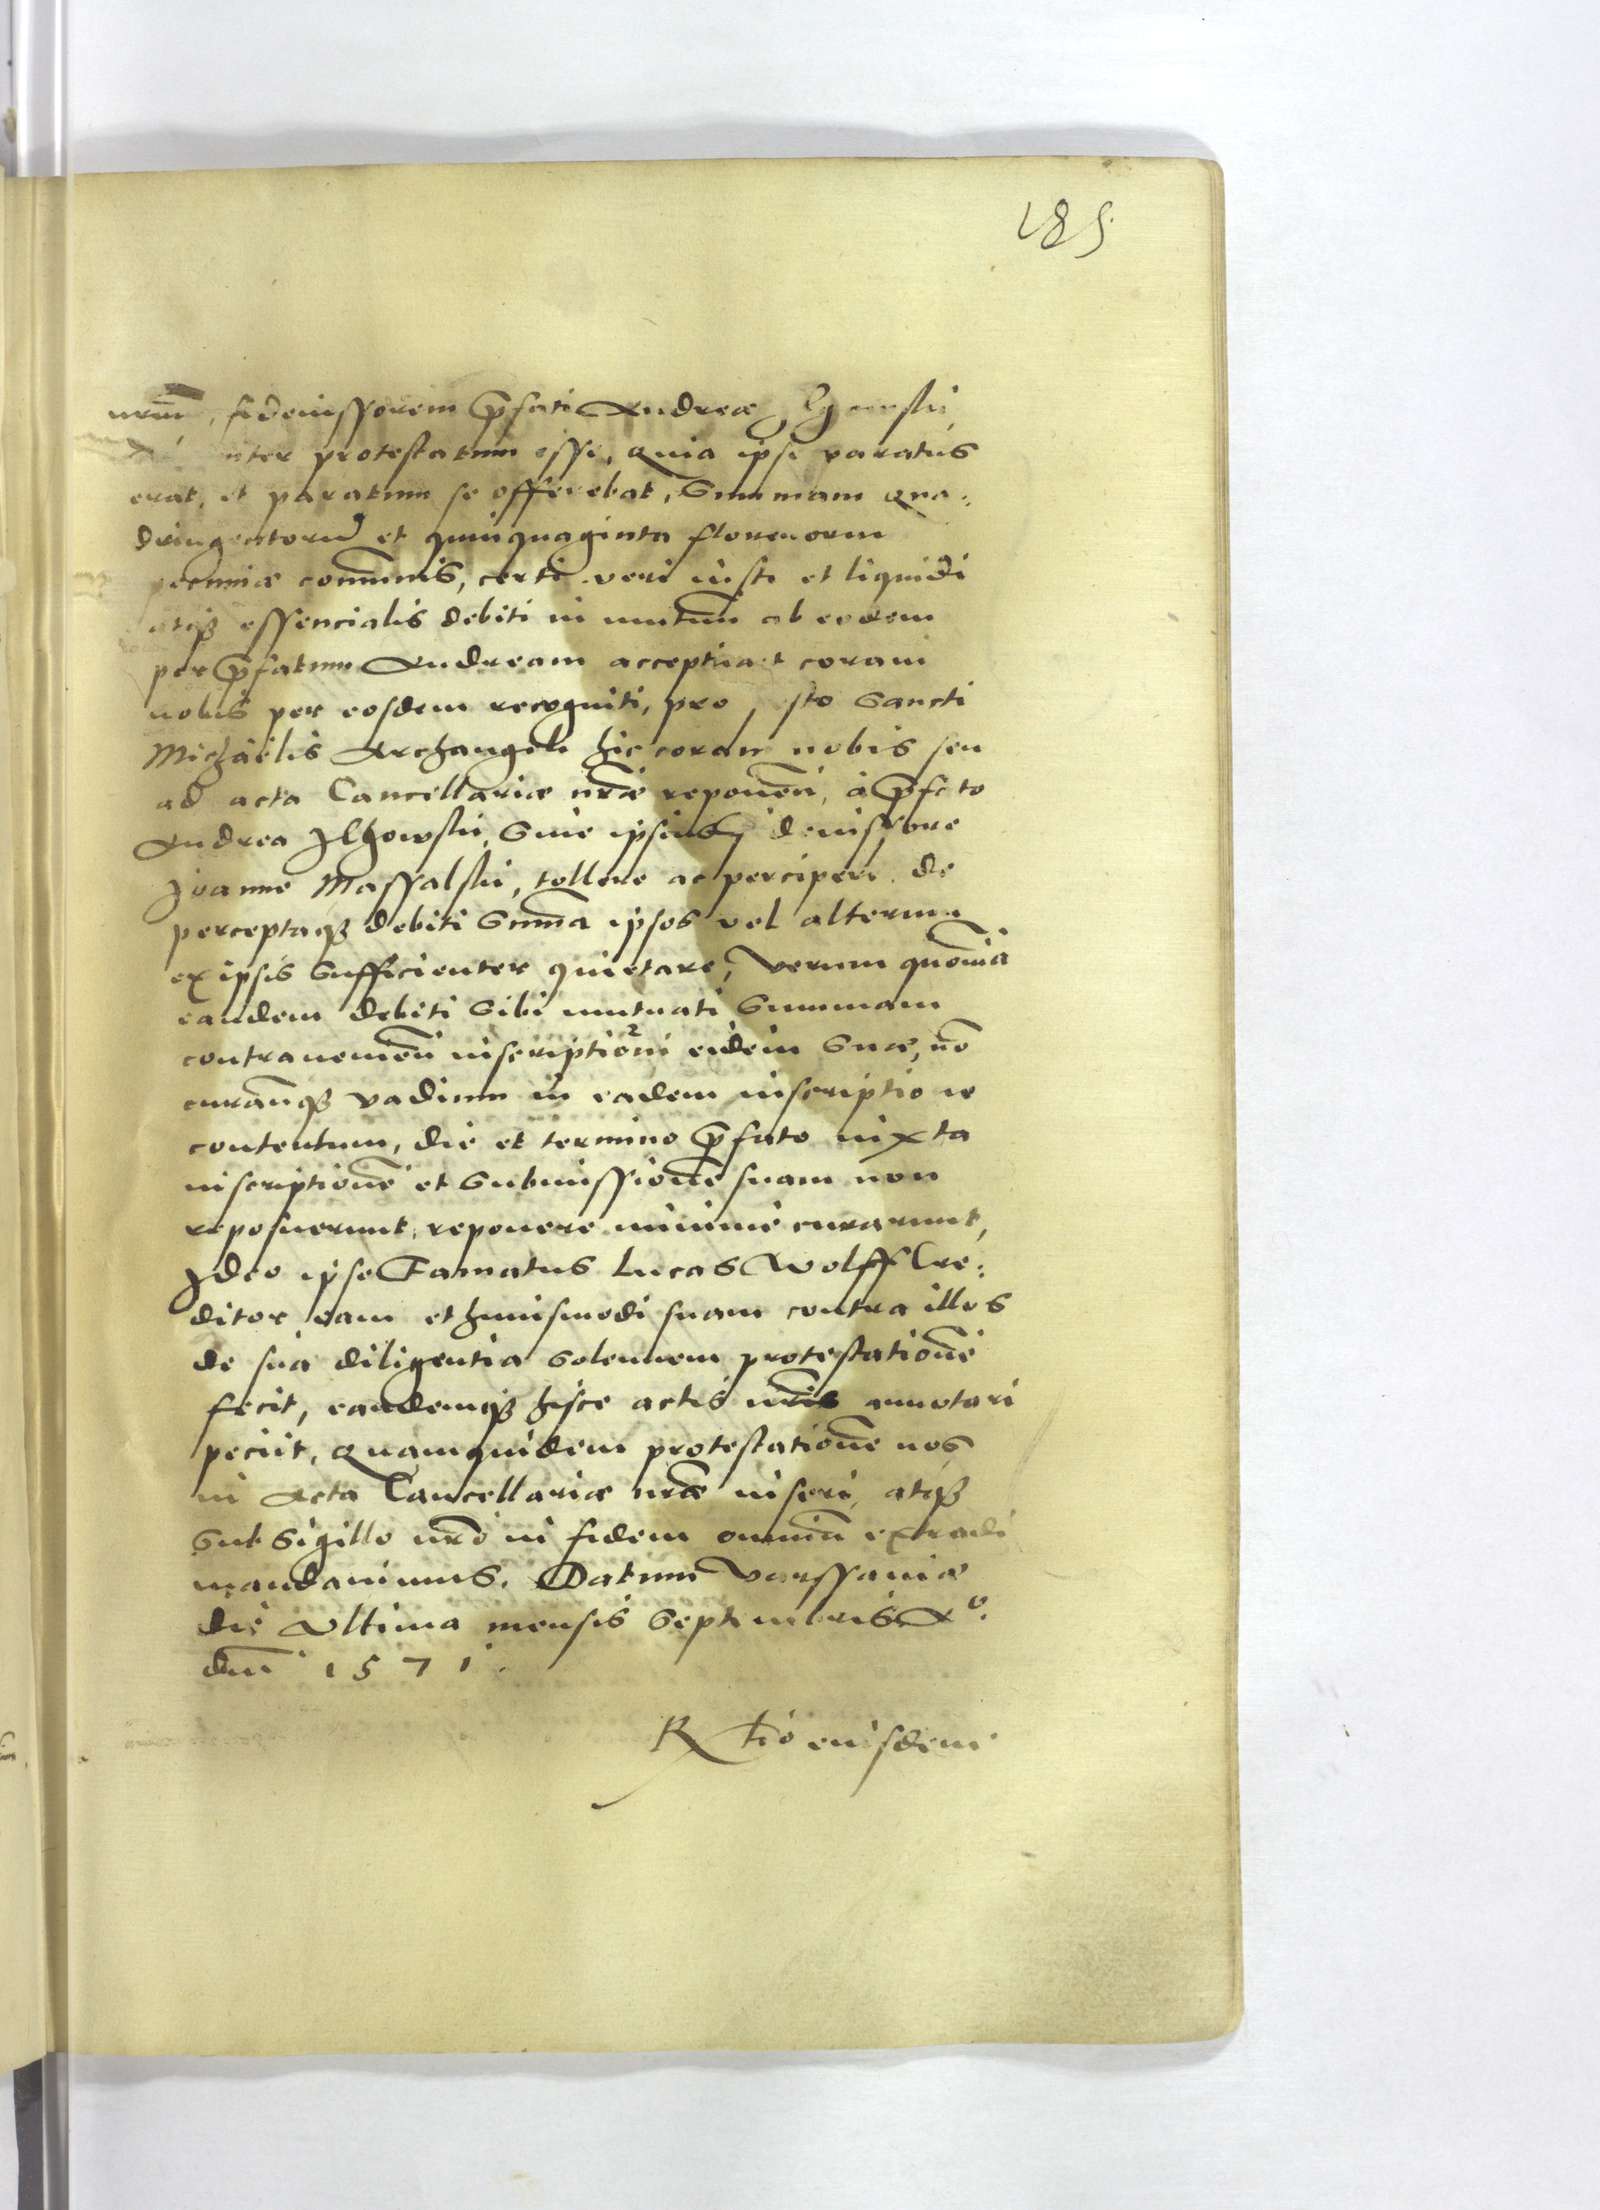 185
nr̄m, fideiussorem p̄fati Andreæ
protestatum esse, Quia ipse paratus
erat, et paratum se offerebat, Summam qua:
dringentorū et quinquaginta florenorum
pecuniæ com̄unis, certi veri iusti et liquidi
atq essencialis debiti in mutuum ab eodem
per p̄fatum Andream accepti coram
nobis per eosdem recogniti, pro festo Sancti
Michaëlis Archangeli hic coram nobis seu
ad acta Cancellariæ nr̄æ reponeñ, à p̄fato
Andrea Ilgowski, Siue ipsius fideiussore
Joanne Massalski, tollere ac percipere, de
perceptaq debiti Sum̄a ipsos vel alterum
ex ipsis Sufficienter quietare, Verum quoniā
eandem debiti Sibi mutuati Summam
contraueniēn inscriptioni eidem Suæ, nō
curan̄q vadium in eadem inscriptione
contentum, die et termino p̄fato iuxta
inscriptionē et Submissionē suam non
reposuerunt, reponere minimè curarunt,
Ideo ipse Famatus Lucas Wolff Cre:
ditor eam et huiusmodi suam contra illos
de sua diligentia Solennem protestationē
fecit, eandemq hisce actis nr̄is annotari
peciit, Quamquidem protestationē nos
in Acta Cancellariæ nr̄æ inseri, atq
Sub Sigillo nr̄o in fidem omniū extradi
mandauimus. Datum Varssauiæ
die Vltima mensis Septembris Aº.
dn̄i 1571.
R tio eiusdem